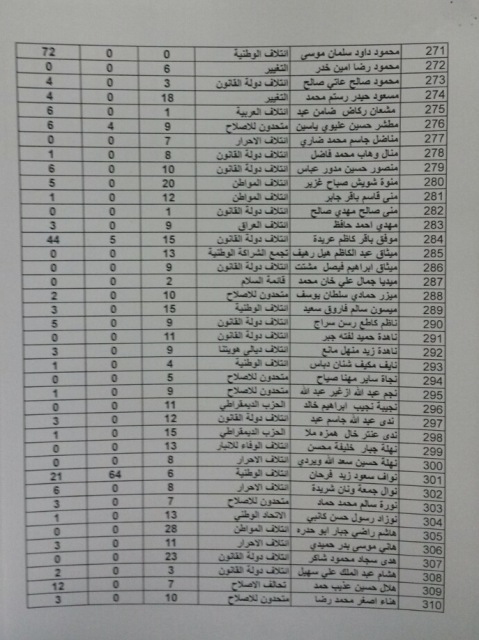 271 محمود داود سلمان موسى ائتلاف الوطنية 0 0 72
272 محمود رضا امين خدر التغيير 6 0 0
273 محمود صالح عاتي صالح ائتلاف دولة القانون 3 0 4
274 مسعود حيدر رستم محمد التغيير 18 0 4
275 مشعان ركاض ضامن عبد ائتلاف العربية 1 0 6
276 مطشر حسين عليوي ياسين متحدون للاصلاح 9 4 6
277 مناضل جاسم محمد ضاري ائتلاف الاحرار 7 0 0
278 منال وهاب محمد فاضل ائتلاف دولة القانون 8 0 1
279 منصور حسين مدور عباس ائتلاف دولة القانون 10 0 6
280 منوة شويش صباح غزير ائتلاف المواطن 20 0 5
281 منى قاسم باقر جابر ائتلاف المواطن 12 0 1
282 منى صالح مهدي صالح ائتلاف دولة القانون 1 0 0
283 مهدي احمد حافظ ائتلاف العراق 9 0 3
284 موفق باقر كاظم عريدة ائتلاف دولة القانون 15 5 44
285 ميثاق عبد الكاظم هيل رهيف تجمع الشراكة الوطنية 13 0 0
286 ميثاق ابراهيم فيصل مشتت ائتلاف دولة القانون 9 0 0
287 ميديا جمال علي خان محمد قائمة السلام 2 0 0
288 ميزر حمادي سلطان يوسف متحدون للاصلاح 10 0 2
289 ميسون سالم فاروق سعيد ائتلاف الوطنية 15 0 3
290 ناظم كاطع رسن سراج ائتلاف دولة القانون 9 0 5
291 ناهدة حميد لفته جبر ائتلاف دولة القانون 11 0 0
292 ناهدة زيد منهل مانع ائتلاف ديالى هويتنا 9 0 3
293 نايف مكيف شنان دباس ائتلاف الوطنية 4 0 1
294 نجاة ساير مهنا صباح متحدون للاصلاح 5 0 0
295 نجم عبد الله ازغير عبد الله متحدون للاصلاح 9 0 1
296 نجيبة نجيب ابراهيم خالد الحزب الديمقراطي 11 0 0
297 ندى عبد الله جاسم عبد ائتلاف دولة القانون 12 0 3
298 ندى عنتر خال همزه ملا الحزب الديمقراطي 15 0 1
299 نهلة جبار خليفة محسن ائتلاف الوفاء للانبار 13 0 0
300 نهلة حسين سعد الله ويردي ائتلاف الاحرار 8 0 0
301 نواف سعود زيد فرحان ائتلاف الوطنية 6 64 21
302 نوال جمعة ونان شريدة ائتلاف الاحرار 8 0 6
303 نورة سالم محمد حماد متحدون للاصلاح 7 0 3
304 نوزاد رسول حسن كانبي الاتحاد الوطني 13 0 1
305 هاشم راضي جبار ابو حدره ائتلاف المواطن 28 0 0
306 هاني موسى بدر حميدي ائتلاف الاحرار 11 0 3
307 هدى سجاد محمود شاكر ائتلاف دولة القانون 23 0 0
308 هشام عبد الملك علي سهيل ائتلاف دولة القانون 3 0 2
309 هلال حسين عذيب حمد تحالف الاصلاح 7 0 12
310 هناء اصغر محمد رضا متحدون للاصلاح 10 0 3